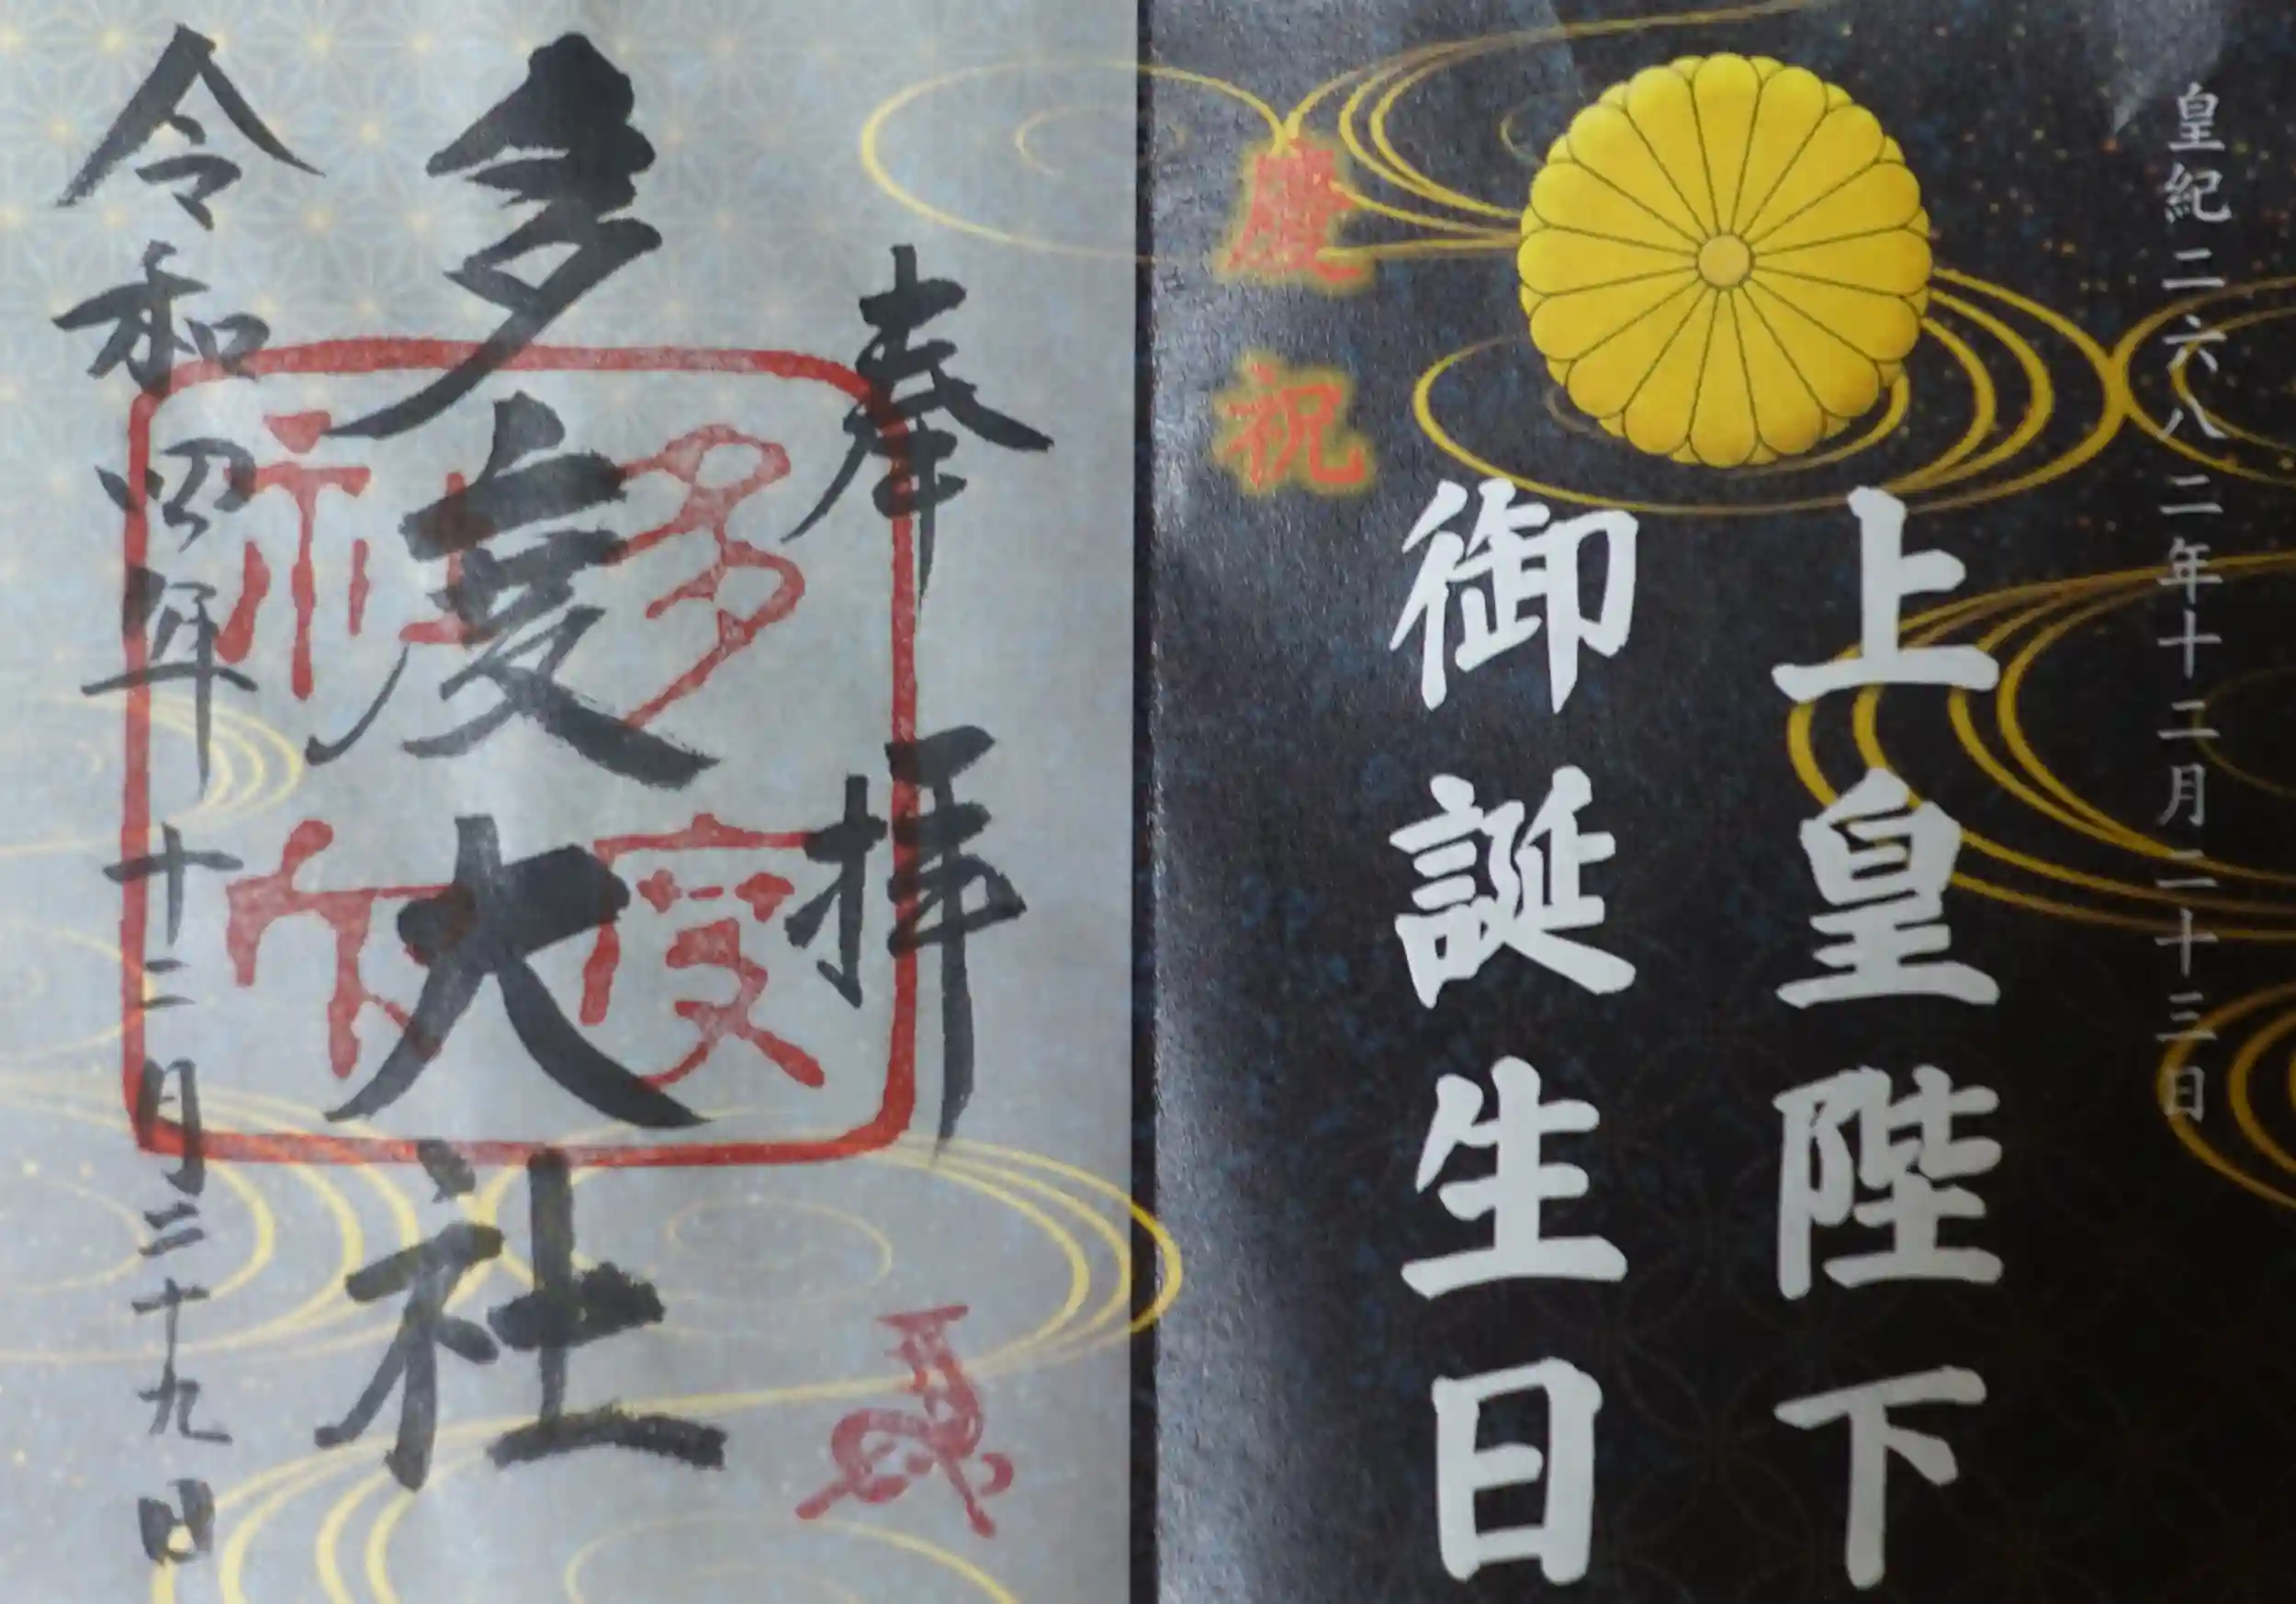 皇紀二六八二年十二月二十三日
上皇陛下
御誕生日
慶祝
奉拝
多度大社
多度
社印
令和四年十二月二十九日